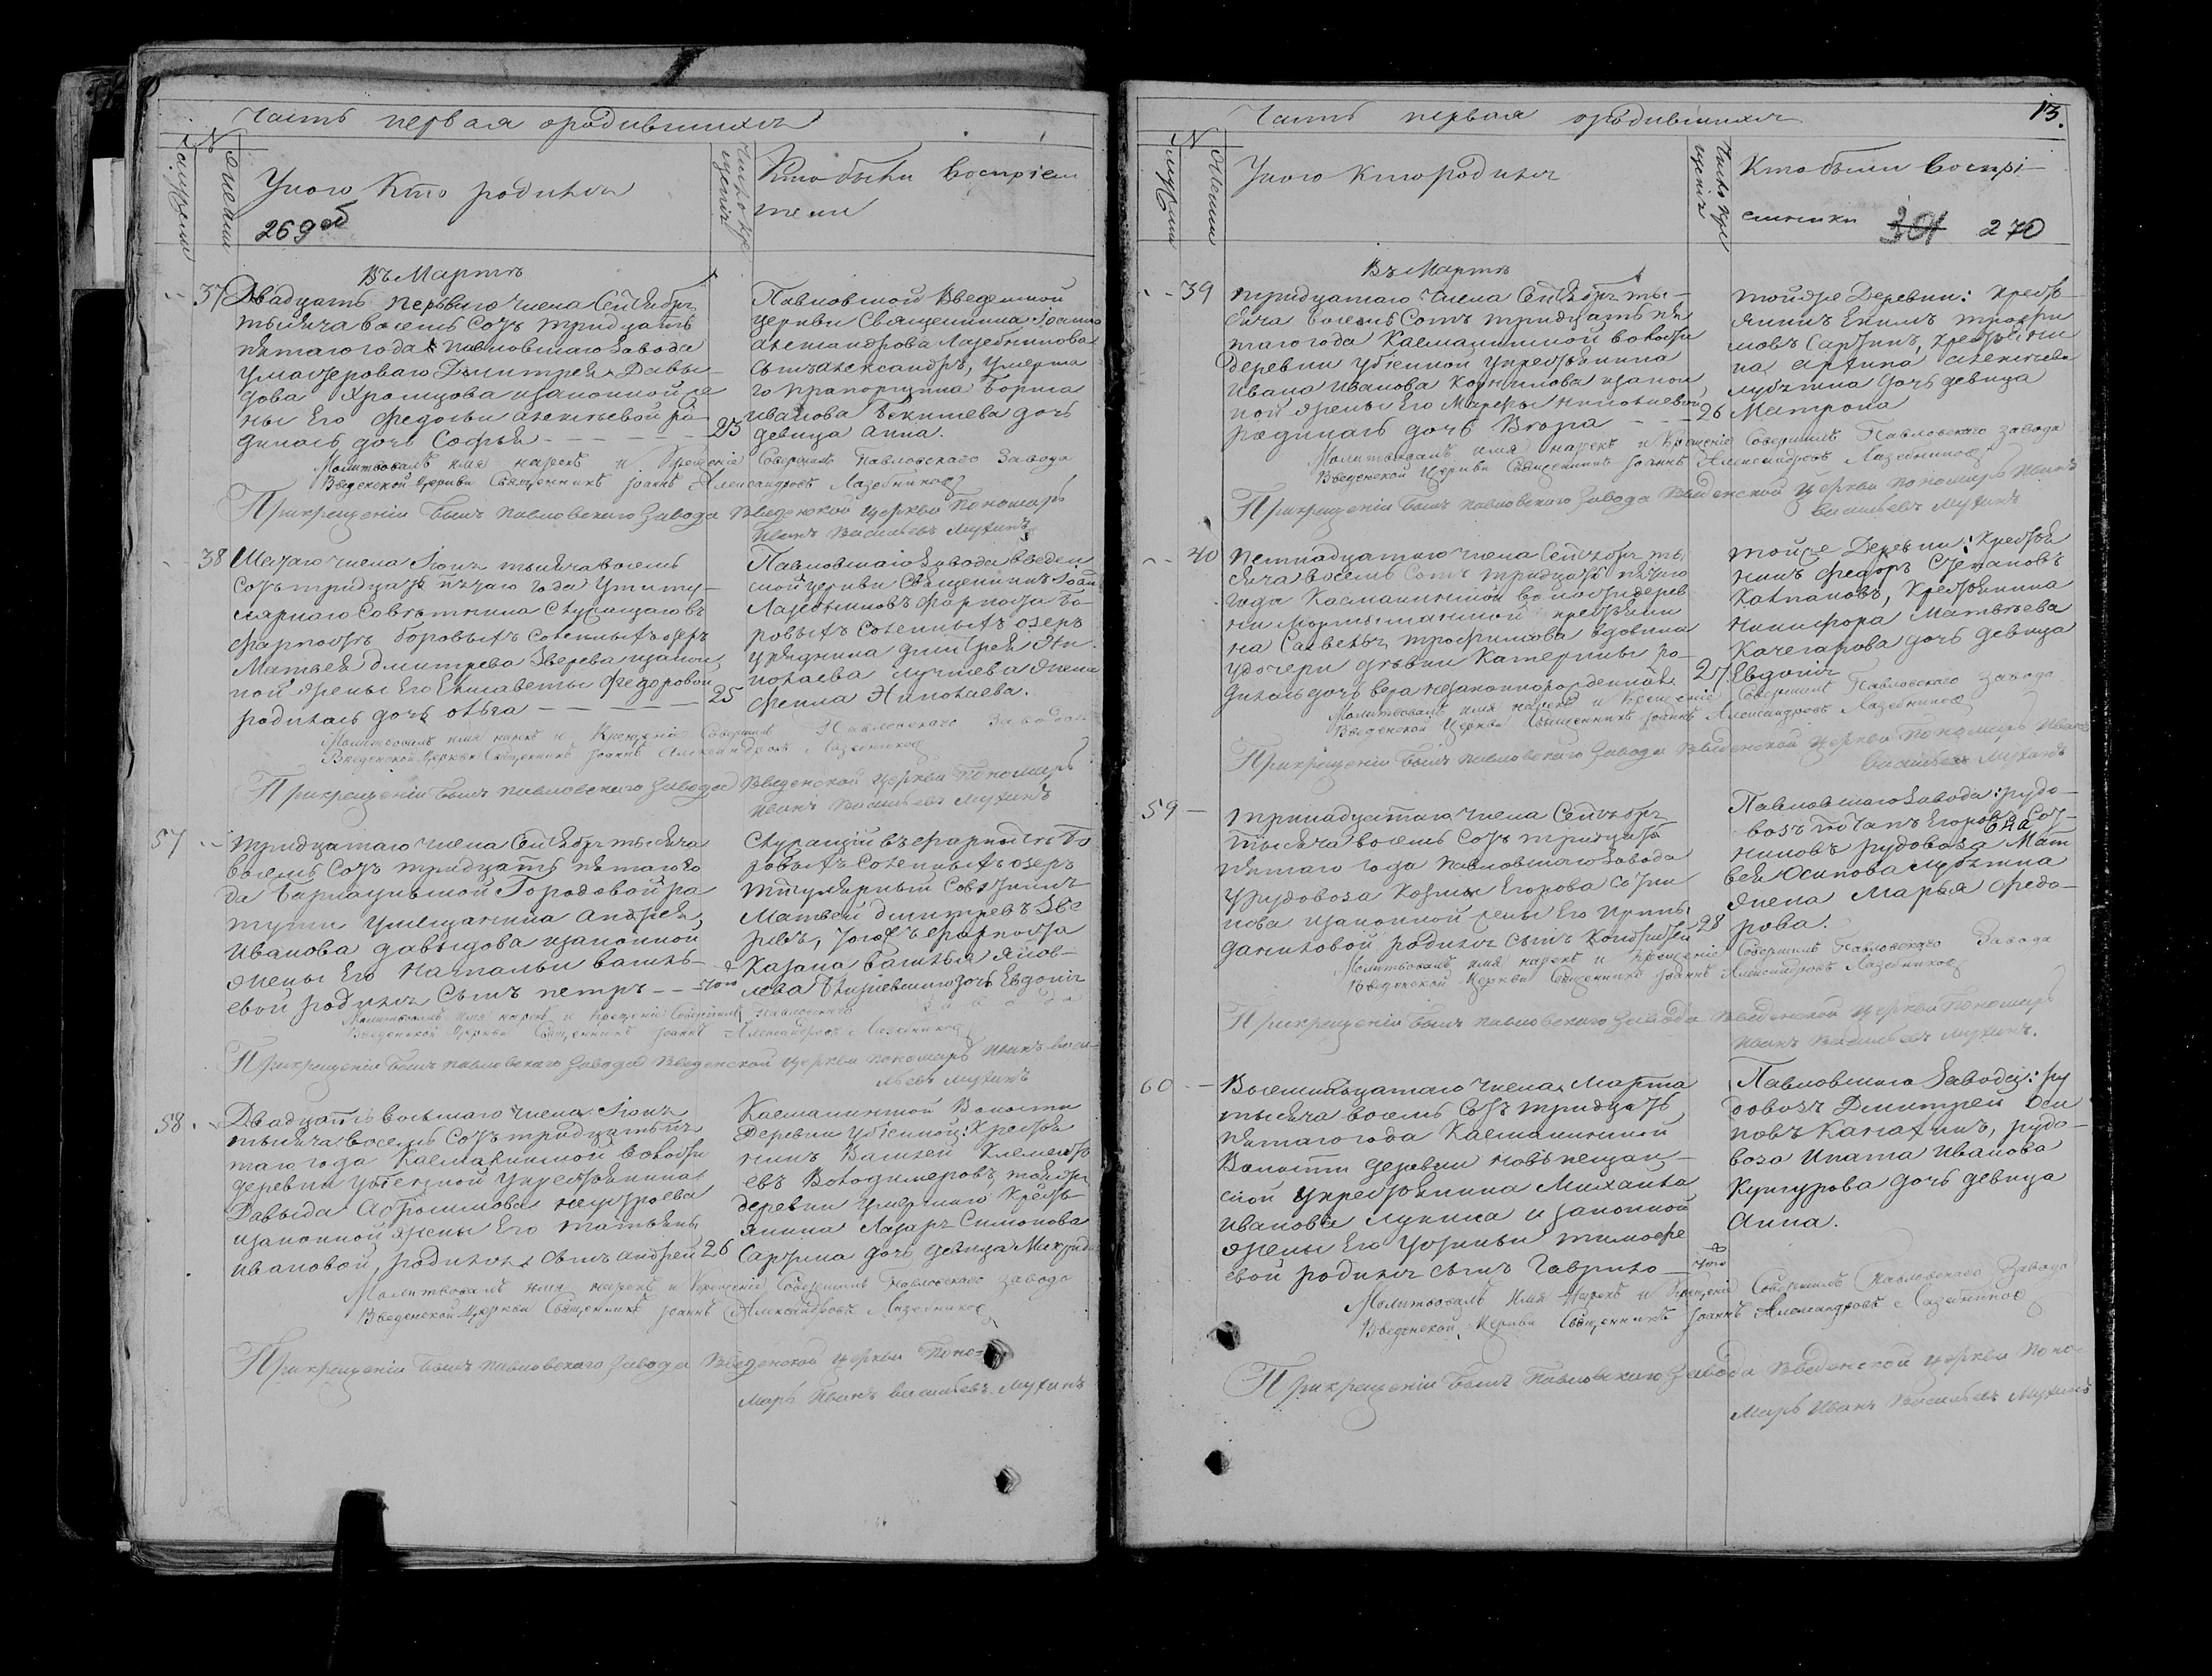 Часть первая ородившихся
N
мужеска
женски
Укого Кто родился
269 об
Число кре
щенія
Кто были воспріем
ники
Въ Мартѣ
37 Двадцать перваго числа
тысяча восемь сотъ тридцать
пятаго года Павловскаго завода
Дмитрея Давы
дова Храмцова изаконной же
ны Его Федосьи Алексѣевой ро
дилась дочь Софья 25
Павловской Введенской
церкви Священника Іоанна
Александрова Лазебникова
сынъ Александръ, Умерша
го прапорщика Бориса
Иванова дочь
девица Анна.
Молитвовалъ имя нарекъ и Крещеніе Совершилъ Павловскаго Завода
Введенской Церкви Священникъ Іоаннъ Александровъ Лазебниковъ
При крещеніи былъ Павловскаго Завода Введенской церкви Пономарь
Иванъ Васильевъ Мухинъ
38 числа тысяча восемь
сотъ тридцать пятаго года Утиту
лярнаго Совѣтника Служащаго въ
Форпостѣ Боровыхъ соленыхъ озеръ
Матвея Дмитрева Зверева изакон
ной жены Его Елисаветы Федоровой
родилась дочь Ольга 25
Павловскаго Завода Введен
ской церкви Священникъ Іоаннъ
Лазебниковъ форпоста Бо
ровыхъ Соленыхъ озеръ
Урядника Дмитрея Ни
колаева жена
Николаева.
Молитвовалъ имя нарекъ и Крещеніе Совершилъ Павловскаго Завода
Введенской Церкви Священникъ Іоаннъ Александровъ Лазебниковъ
При крещеніи былъ Павловскаго Завода Введенской церкви Пономарь
Иванъ Васильевъ Мухинъ
57 числа тысяча
восемь сотъ тридцать пятаго го
да Барнаульской Городовой ра
туши Умещанина Андрея
Иванова Давыдова изаконной
жены Его Натальи Василь
евой родился сынъ Петръ
Служащій въ форпостѣ Бо
ровыхъ Соленыхъ озеръ
титулярный Совѣтникъ
Матвей Дмитревъ Зве
ревъ, форпоста
Казака Василья Яков
лева дочь Евдокія
Молитвовалъ имя нарекъ и Крещеніе Совершилъ Павловскаго Завода
Введенской Церкви Священникъ Іоаннъ Александровъ Лазебниковъ
При крещеніи былъ Павловскаго Завода Введенской церкви Пономарь Иванъ Васи
льевъ Мухинъ
58 Двадцать восьмаго числа
тысяча восемь сотъ тридцать пя
таго года Касмалинской волости
деревни Убіенной Укрестьянина
Давыда
изаконной жены Его Татьяны
Ивановой, родился сынъ Андрей 26
Касмалинской Волости
Деревни Убіенной: Крестья
нинъ Василей Клементь
евъ Володимеровъ, тойже
деревни Умершаго Кресть
янина Лазаря Симонова
дочь девица
Молитвовалъ имя нарекъ и Крещеніе Совершилъ Павловскаго Завода
Введенской Церкви Священникъ Іоаннъ Александровъ Лазебниковъ
При крещеніи былъ Павловскаго Завода Введенской церкви Поно
марь Иванъ Васильевъ Мухинъ
13.
Часть первая ородившихся
N
мужески
женски
Укого кто родился
Число кре
щенія
Кто были воспрі
емники 270
Въ Мартѣ
39 числа ты
сяча восемь сотъ тридцать пя
таго года Касмалинской волости
Деревни Убіенной Укрестьянина
Ивана Иванова Корнилова изакон
ной жены Его Марфы Николаевой
родилась дочь 26
тойже Деревни: Кресть
янинъ Екимъ Трофи
мовъ, Крестьяни
на Алексѣева
дочь девица
Матрона
Молитвовалъ имя нарекъ и Крещеніе Совершилъ Павловскаго Завода
Введенской Церкви Священникъ Іоаннъ Александровъ Лазебниковъ
При крещеніи былъ Павловскаго Завода Введенской церкви Пономарь Иванъ
Васильевъ Мухинъ
40 числа ты
сяча восемь сотъ тридцать пятаго
года Касмалинской волости дерев
ни крестьяни
на Трофимова вдовина
Удочери девки Катерины ро
дилась дочь Вера незаконнорожденная 27
тойже Деревни: Крестья
нинъ Федоръ Степановъ
Колпаковъ, Крестьянина
Никифора Матвѣева
Качегарова дочь девица
Евдокія
Молитвовалъ имя нарекъ и Крещеніе Совершилъ Павловскаго Завода
Введенской Церкви Священникъ Іоаннъ Александровъ Лазебниковъ
При крещеніи былъ Павловскаго Завода Введенской церкви Пономарь Иванъ
Васильевъ Мухинъ
59 числа
тысяча восемь сотъ тридцать
пятаго года Павловскаго Завода
Урудовоза Козмы Егорова
изаконной жены Его Ирины
Даниловой родился сынъ Кондратей 28
Павловскаго Завода: рудо
возъ Егоровъ
рудовоза Мат
вея Осипова
жена Марья Федо
рова.
Молитвовалъ имя нарекъ и Крещеніе Совершилъ Павловскаго Завода
Введенской Церкви Священникъ Іоаннъ Александровъ Лазебниковъ
При крещеніи былъ Павловскаго Завода Введенской церкви Пономарь
Иванъ Васильевъ Мухинъ.
60 числа Марта
тысяча восемь сотъ тридцать
пятаго года Касмалинской
Волости деревни
Укрестьянина Михаила
Иванова Лукина изаконной
жены Его Устиньи Тимофе
евой родился сынъ Гаврило
Павловскаго Завода: ру
довозъ Дмитрей Оси
повъ, рудо
воза Ипата Иванова
Кунгурова дочь девица
Анна.
Молитвовалъ имя нарекъ и Крещеніе Совершилъ Павловскаго Завода
Введенской Церкви Священникъ Іоаннъ Александровъ Лазебниковъ
При крещеніи былъ Павловскаго Завода Введенской церкви Поно
марь Иванъ Васильевъ Мухинъ